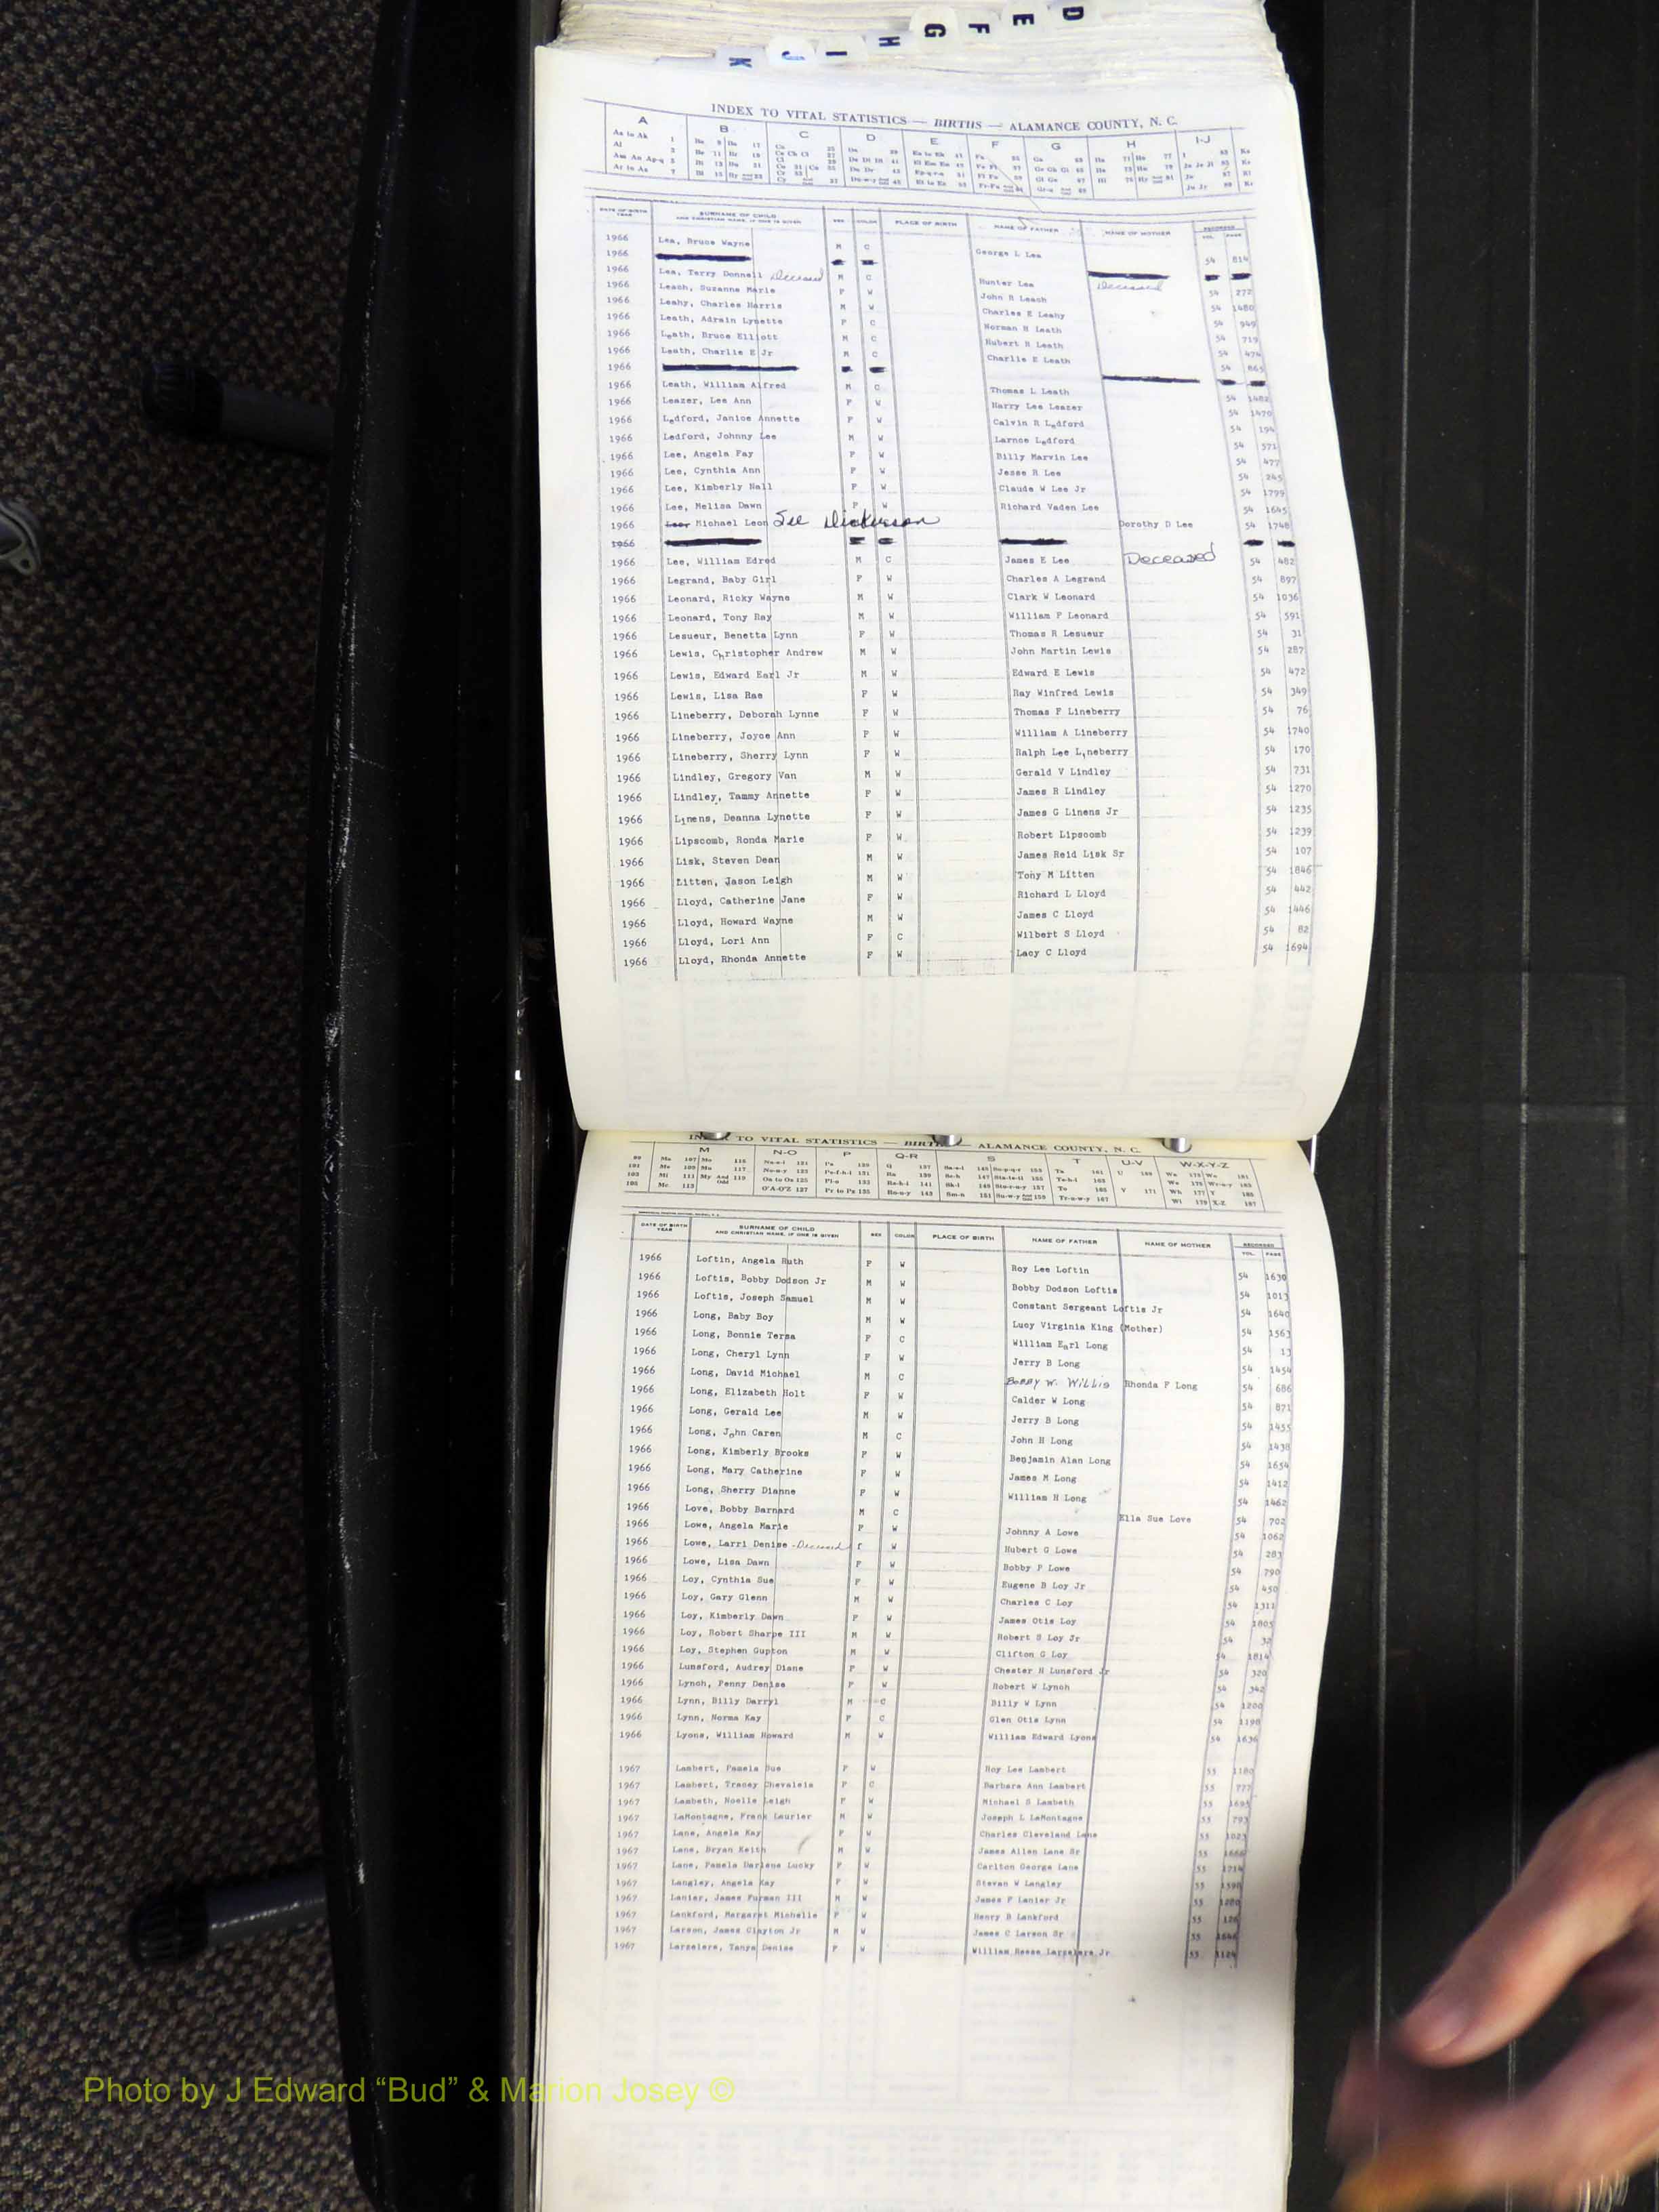 D
E
F
G
H
I
J
K
INDEX TO VITAL STATISTICS — BIRTHS — ALAMANCE COUNTY, N. C.
A B C D E F G H I-J
DATE OF BIRTH YEAR SURNAME OF CHILD AND CHRISTIAN NAME, IF ONE IS GIVEN SEX COLOR PLACE OF BIRTH NAME OF FATHER NAME OF MOTHER RECORDED VOL. PAGE
1966 Lea, Bruce Wayne M C George L Lea 54 814
1966
1966 Lea, Terry Donnell Deceased M C Hunter Lea Deceased 54 272
1966 Leach, Suzanne Marie F W John R Leach 54 1480
1966 Leahy, Charles Harris M W Charles E Leahy 54 949
1966 Leath, Adrain Lynette F C Norman H Leath 54 719
1966 Leath, Bruce Elliott M C Hubert R Leath 54 474
1966 Leath, Charlie E Jr M C Charlie E Leath 54 865
1966
1966 Leath, William Alfred M C Thomas L Leath 54 1482
1966 Leazer, Lee Ann F W Harry Lee Leazer 54 1470
1966 Ledford, Janice Annette F W Calvin R Ledford 54 194
1966 Ledford, Johnny Lee M W Larnce Ledford 54 571
1966 Lee, Angela Fay F W Billy Marvin Lee 54 477
1966 Lee, Cynthia Ann F W Jesse R Lee 54 245
1966 Lee, Kimberly Nall F W Claude W Lee Jr 54 1799
1966 Lee, Melisa Dawn F W Richard Vaden Lee 54 1645
1966 Michael Leon See Dickerson Dorothy D Lee 54 1748
1966
1966 Lee, William Edred M C James E Lee Deceased 54 482
1966 Legrand, Baby Girl F W Charles A Legrand 54 897
1966 Leonard, Ricky Wayne M W Clark W Leonard 54 1036
1966 Leonard, Tony Ray M W William F Leonard 54 591
1966 Lesueur, Benetta Lynn F W Thomas R Lesueur 54 31
1966 Lewis, Christopher Andrew M W John Martin Lewis 54 287
1966 Lewis, Edward Earl Jr M W Edward E Lewis 54 472
1966 Lewis, Lisa Rae F W Ray Winfred Lewis 54 349
1966 Lineberry, Deborah Lynne F W Thomas F Lineberry 54 76
1966 Lineberry, Joyce Ann F W William A Lineberry 54 1740
1966 Lineberry, Sherry Lynn F W Ralph Lee Lineberry 54 170
1966 Lindley, Gregory Van M W Gerald V Lindley 54 731
1966 Lindley, Tammy Annette F W James R Lindley 54 1270
1966 Linens, Deanna Lynette F W James G Linens Jr 54 1235
1966 Lipscomb, Ronda Marie F W Robert Lipscomb 54 1239
1966 Lisk, Steven Dean M W James Reid Lisk Sr 54 107
1966 Litten, Jason Leigh M W Tony M Litten 54 1846
1966 Lloyd, Catherine Jane F W Richard L Lloyd 54 442
1966 Lloyd, Howard Wayne M W James C Lloyd 54 1446
1966 Lloyd, Lori Ann F C Wilbert S Lloyd 54 82
1966 Lloyd, Rhonda Annette F W Lacy C Lloyd 54 1694
INDEX TO VITAL STATISTICS — BIRTHS ALAMANCE COUNTY, N. C.
M N-O P Q-R S T U-V W-X-Y-Z
DATE OF BIRTH YEAR SURNAME OF CHILD AND CHRISTIAN NAME, IF ONE IS GIVEN SEX COLOR PLACE OF BIRTH NAME OF FATHER NAME OF MOTHER RECORDED VOL. PAGE
1966 Loftin, Angela Ruth F W Roy Lee Loftin 54 1630
1966 Loftis, Bobby Dodson Jr M W Bobby Dodson Loftis 54 1013
1966 Loftis, Joseph Samuel M W Constant Sergeant Loftis Jr 54 1640
1966 Long, Baby Boy M W Lucy Virginia King (Mother) 54 1563
1966 Long, Bonnie Tersa F C William Earl Long 54 13
1966 Long, Cheryl Lynn F W Jerry B Long 54 1454
1966 Long, David Michael M C Bobby W. Willis Rhonda F Long 54 686
1966 Long, Elizabeth Holt F W Calder W Long 54 871
1966 Long, Gerald Lee M W Jerry B Long 54 1455
1966 Long, John Caren M C John H Long 54 1438
1966 Long, Kimberly Brooks F W Benjamin Alan Long 54 1654
1966 Long, Mary Catherine F W James M Long 54 1412
1966 Long, Sherry Dianne F W William H Long 54 1462
1966 Love, Bobby Barnard M C Ella Sue Love 54 702
1966 Lowe, Angela Marie F W Johnny A Lowe 54 1062
1966 Lowe, Larri Denise - Deceased F W Hubert G Lowe 54 283
1966 Lowe, Lisa Dawn F W Bobby F Lowe 54 790
1966 Loy, Cynthia Sue F W Eugene B Loy Jr 54 450
1966 Loy, Gary Glenn M W Charles C Loy 54 1311
1966 Loy, Kimberly Dawn F W James Otis Loy 54 1805
1966 Loy, Robert Sharpe III M W Robert S Loy Jr 54 32
1966 Loy, Stephen Gupton M W Clifton G Loy 54 1814
1966 Lunsford, Audrey Diane F W Chester H Lunsford Jr 54 320
1966 Lynch, Penny Denise F W Robert W Lynch 54 342
1966 Lynn, Billy Darryl M C Billy W Lynn 54 1200
1966 Lynn, Norma Kay F C Glen Otis Lynn 54 1198
1966 Lyons, William Howard M W William Edward Lyons 54 1636
1967 Lambert, Pamela Sue F W Roy Lee Lambert 55 1180
1967 Lambert, Tracey Chevaleia F C Barbara Ann Lambert 55 777
1967 Lambeth, Noelle Leigh F W Michael S Lambeth 55 1695
1967 LaMontagne, Frank Laurier M W Joseph L LaMontagne 55 793
1967 Lane, Angela Kay F W Charles Cleveland Lane 55 1023
1967 Lane, Bryan Keith M W James Allen Lane Sr 55 1666
1967 Lane, Pamela Darlene Lucky F W Carlton George Lane 55 1714
1967 Langley, Angela Kay F W Steven W Langley 55 1598
1967 Lanier, James Furman III M W James F Lanier Jr 55 1280
1967 Lankford, Margaret Michelle F W Henry B Lankford 55 126
1967 Larson, James Clayton Jr M W James C Larson Sr 55
1967 Larzelere, Tanya Denise F W William Reese Larzelere Jr 55 1124
Photo by J Edward “Bud” & Marion Josey ©